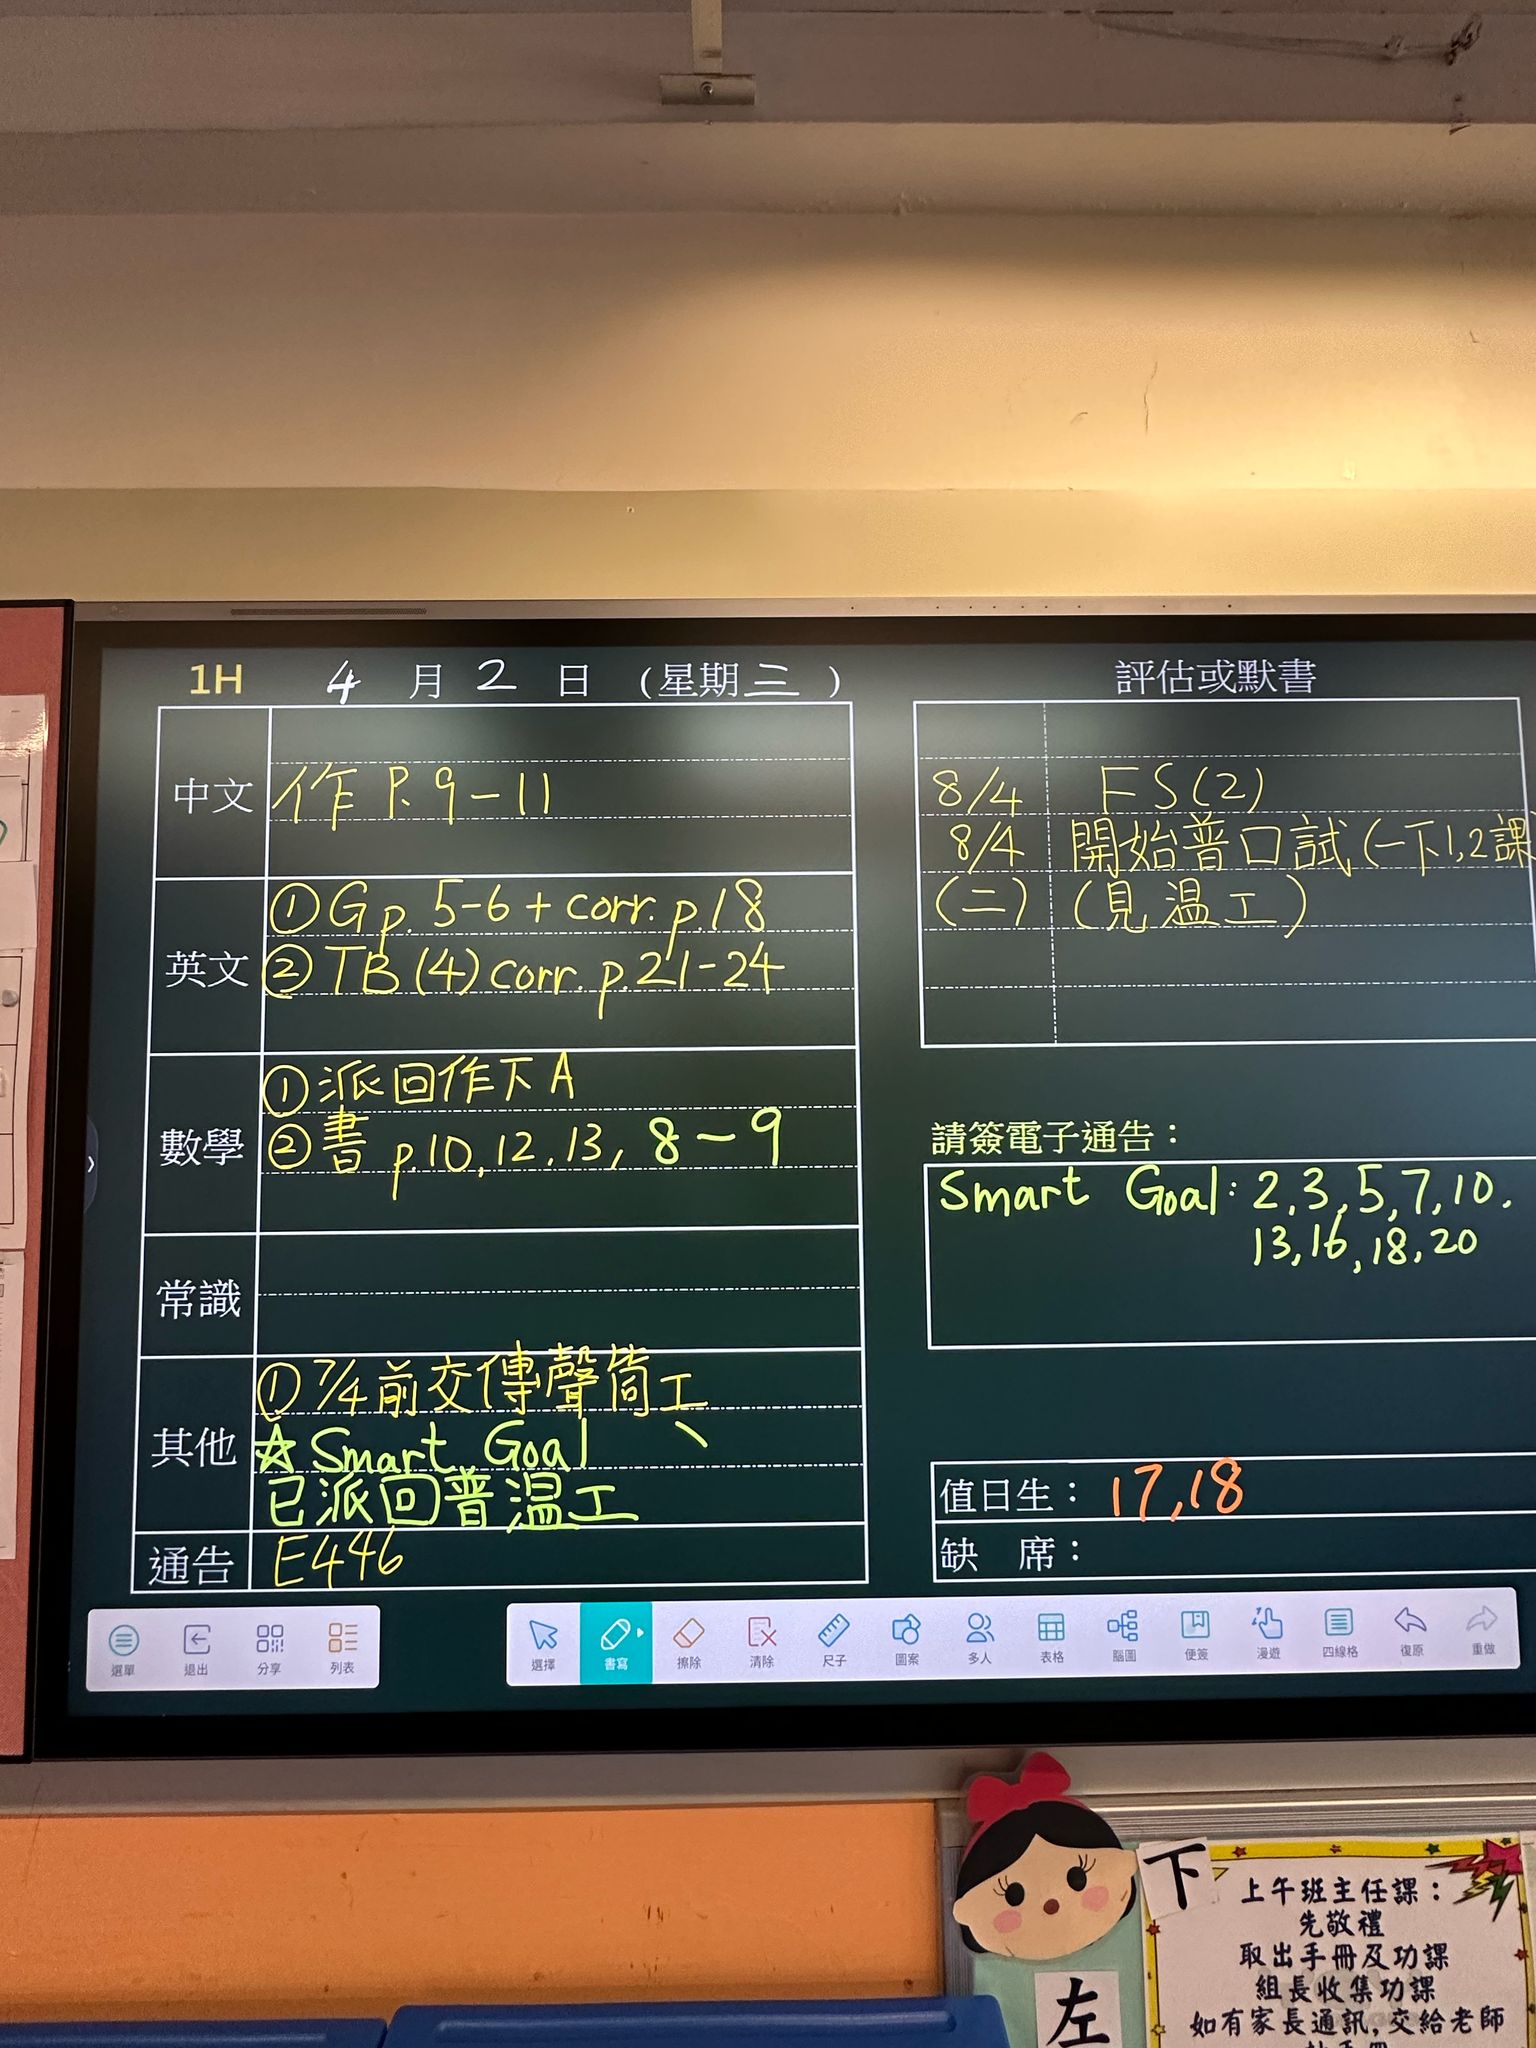 1H 4 月 2 日 (星期三)
中文
作 P.9-11
英文
①G p.5-6 + corr. p.18
②TB(4) corr. p.21-24
數學
①派回作下A
②書 p.10,12,13, 8-9
常識
其他
①7/4前交傳聲筒工
☆Smart Goal
已派回普温工
通告
E446
評估或默書
8/4 FS(2)
8/4 開始普口試(一下1,2課)
(二) (見温工)
請簽電子通告：
Smart Goal: 2,3,5,7,10,
13,16,18,20
值日生： 17,18
缺 席：
選單 退出 分享 列表
選擇 書寫 擦除 清除 尺子 圖案 多人 表格 腦圖 便簽 漫遊 四線格 復原 重做
下
左
上午班主任課：
先敬禮
取出手冊及功課
組長收集功課
如有家長通訊,交給老師